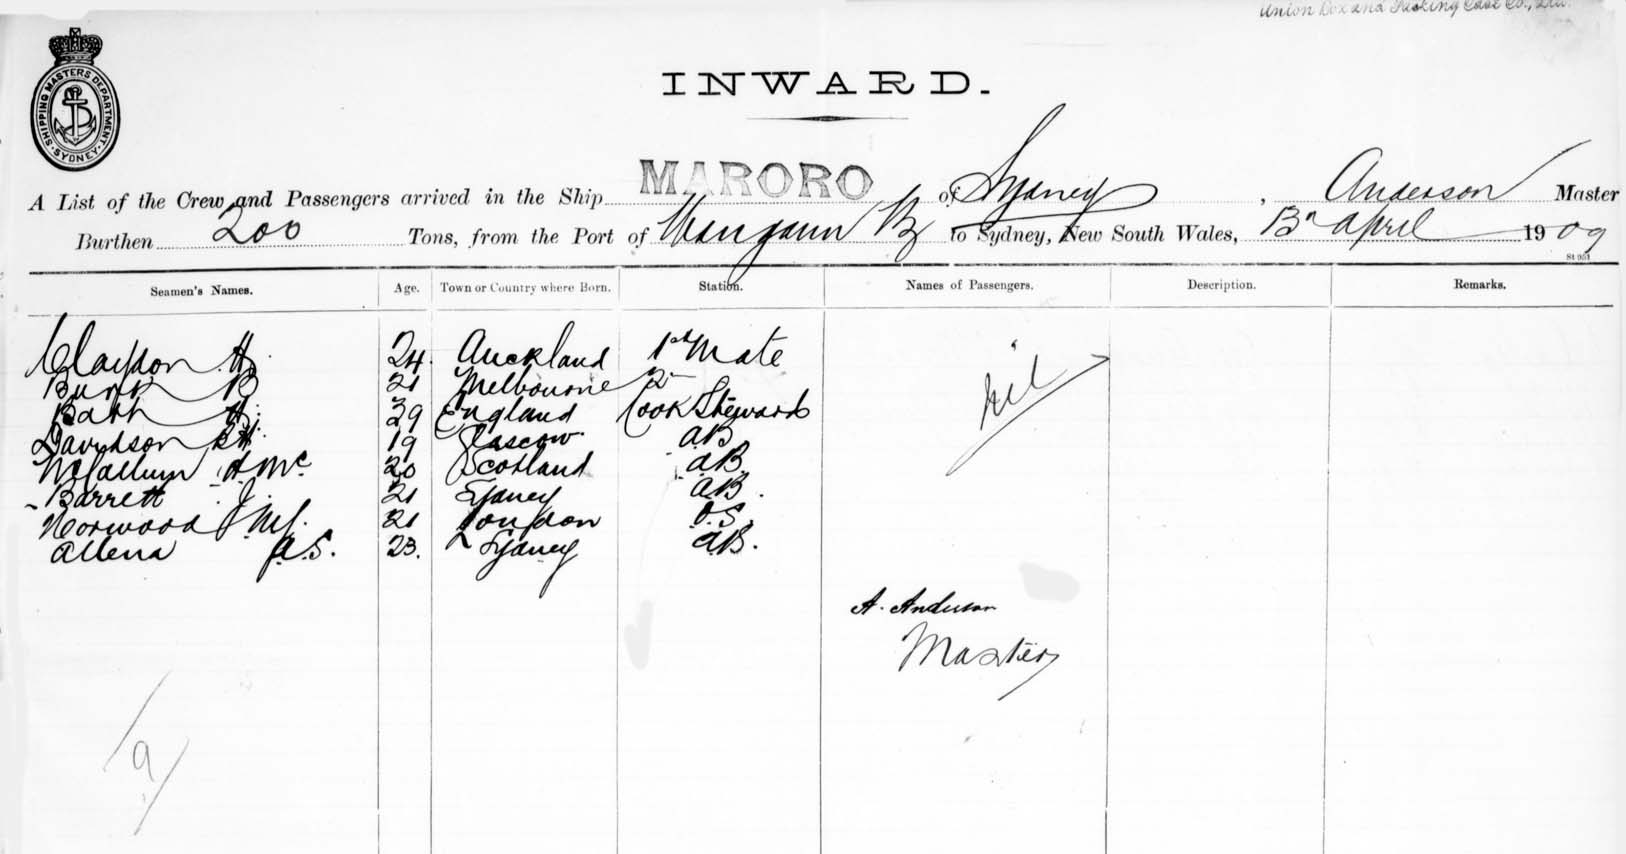 Union Box and Packing Case Co., Ltd.
SHIPPING MASTERS DEPARTMENT. SYDNEY.
INWARD.
A List of the Crew and Passengers arrived in the Ship MARORO of Sydney, Anderson Master
Burthen 200 Tons, from the Port of to Sydney, New South Wales, April 1909
Seamen's Names. Age. Town or Country where Born. Station. Names of Passengers. Description. Remarks.
H. 24. Auckland 1st Mate nil
B 21 Melbourne 2
H. 39 England Cook Steward
Davidson 19 Glascow A.B
McCallum 20 Scotland A.B.
Barrett J. 21 Sydney A.B.
Norwood 21 London O.S.
Allena A.S. 23. Sydney A.B.
A. Anderson
Master
9